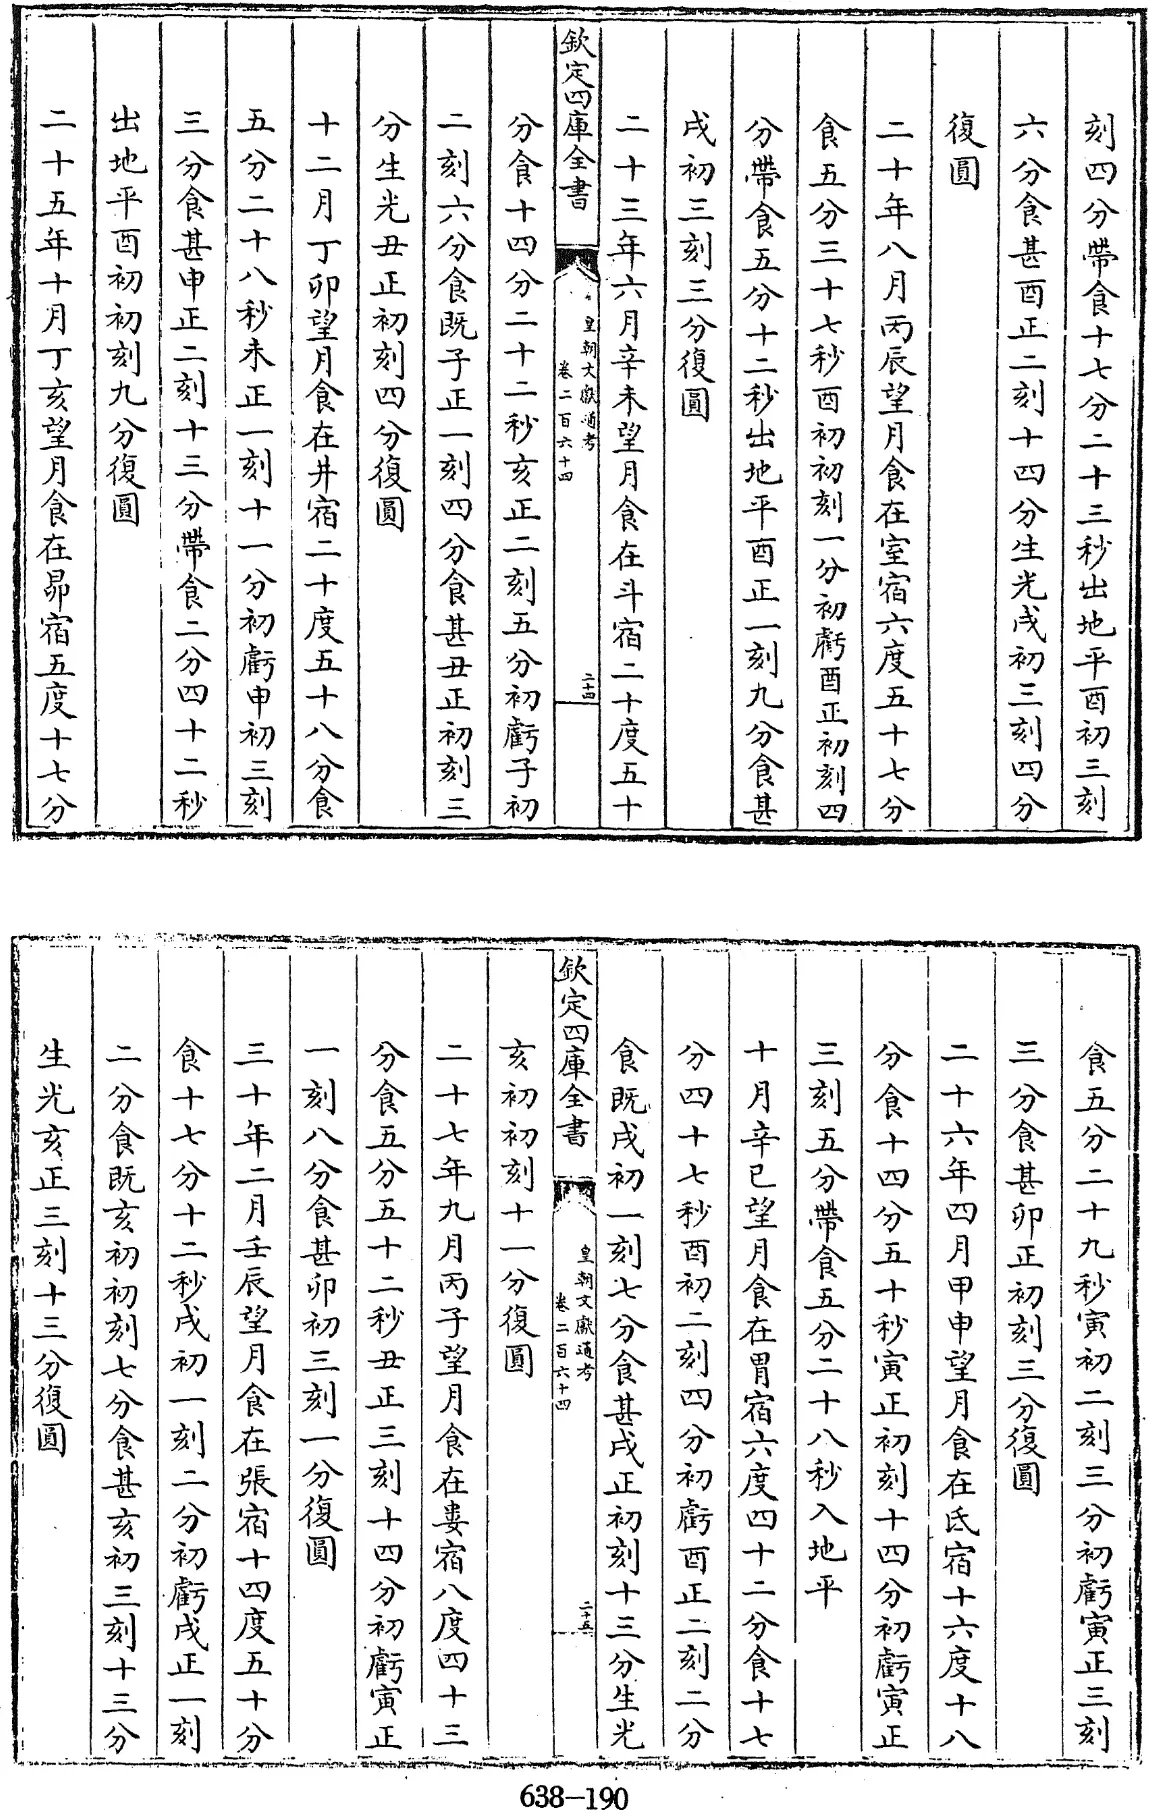 刻四分帶食十七分二十三秒出地平酉初三刻
六分食甚酉正二刻十四分生光戌初三刻四分
復圓
二十年八月丙辰望月食在室宿六度五十七分
食五分三十七秒酉初初刻一分初虧酉正初刻四
分帶食五分十二秒出地平酉正一刻九分食甚
戌初三刻三分復圓
二十三年六月辛未望月食在斗宿二十度五十
欽定四庫全書
皇朝文獻通考
卷二百六十四
二十四
分食十四分二十二秒亥正二刻五分初虧子初
二刻六分食既子正一刻四分食甚丑正初刻三
分生光丑正初刻四分復圓
十二月丁卯望月食在井宿二十度五十八分食
五分二十八秒未正一刻十一分初虧申初三刻
三分食甚申正二刻十三分帶食二分四十二秒
出地平酉初初刻九分復圓
二十五年十月丁亥望月食在昴宿五度十七分
食五分二十九秒寅初二刻三分初虧寅正三刻
三分食甚卯正初刻三分復圓
二十六年四月甲申望月食在氐宿十六度十八
分食十四分五十秒寅正初刻十四分初虧寅正
三刻五分帶食五分二十八秒入地平
十月辛巳望月食在胃宿六度四十二分食十七
分四十七秒酉初二刻四分初虧酉正二刻二分
食既戌初一刻七分食甚戌正初刻十三分生光
欽定四庫全書
皇朝文獻通考
卷二百六十四
二十五
亥初初刻十一分復圓
二十七年九月丙子望月食在婁宿八度四十三
分食五分五十二秒丑正三刻十四分初虧寅正
一刻八分食甚卯初三刻一分復圓
三十年二月壬辰望月食在張宿十四度五十分
食十七分十二秒戌初一刻二分初虧戌正一刻
二分食既亥初初刻七分食甚亥初三刻十三分
生光亥正三刻十三分復圓
638-190